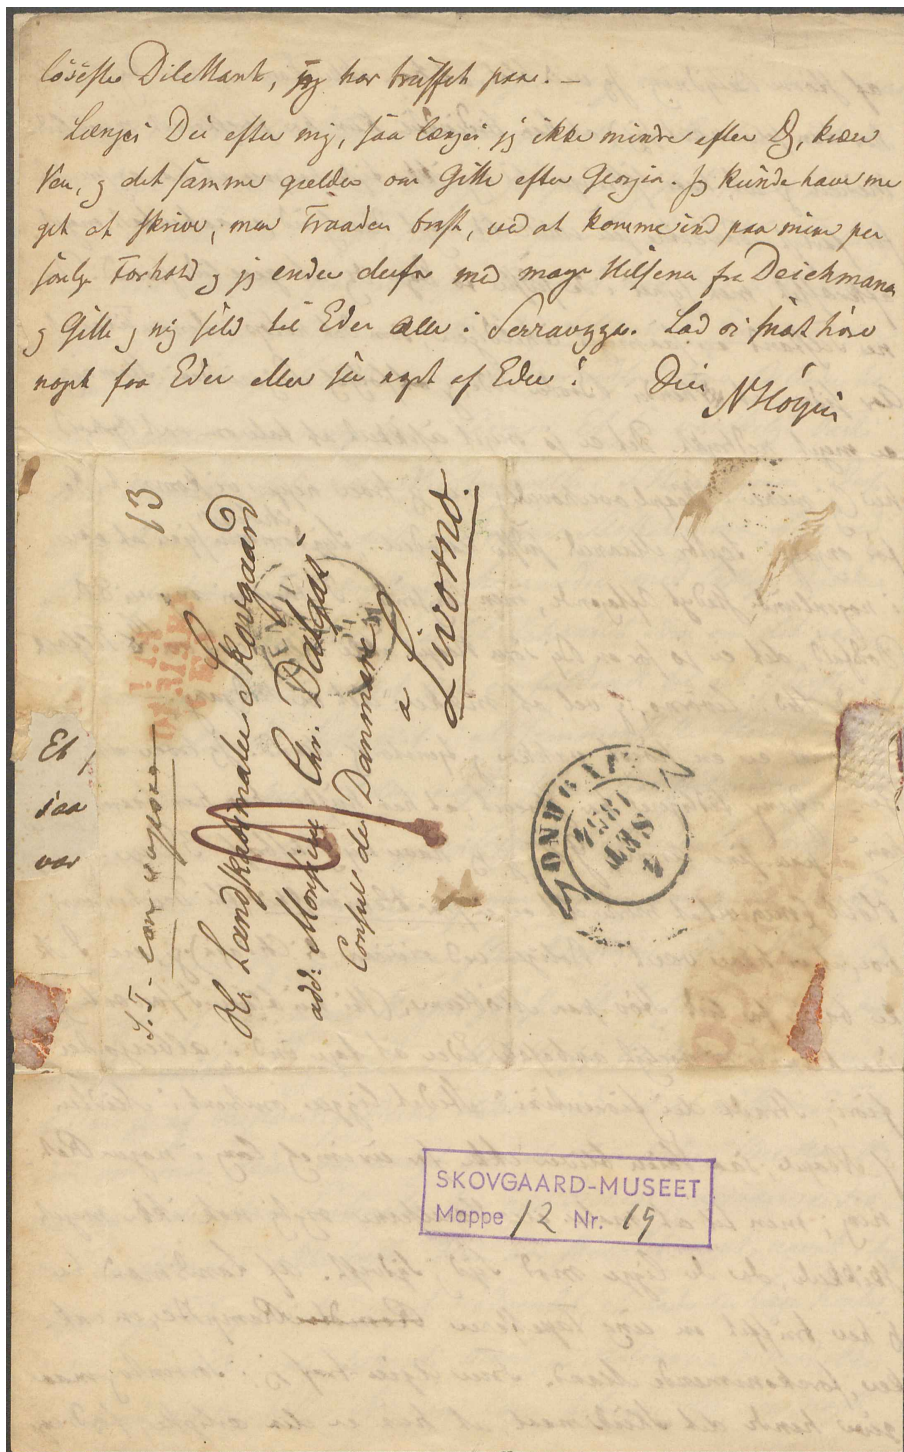 löseste Dilettant, jeg har truffet paa. —
Længes Du efter mig, saa længes jeg ikke mindre efter Dig, kiære
Ven, og det samme gielder om Gitte efter Georgia. Jeg kunde have me
get at skrive, men Traaden brast, ved at komme ind paa mine per
sönlige Forhold og jeg ender derfor med mange Hilsener fra Deichmanns
og Gitte og mig selv til Eder alle i Serravezza. Lad os snart höre
noget fra Eder eller see noget af Eder! Din
NHöyen
13
S.T.
Hr. Landskabsmaler Skovgaard
add: Monsieur Chr. Dalgas
Consul de Danmark
a
Livorno.
Et
saa
var
4
SET
1854
SKOVGAARD-MUSEET
Mappe 12 Nr. 19